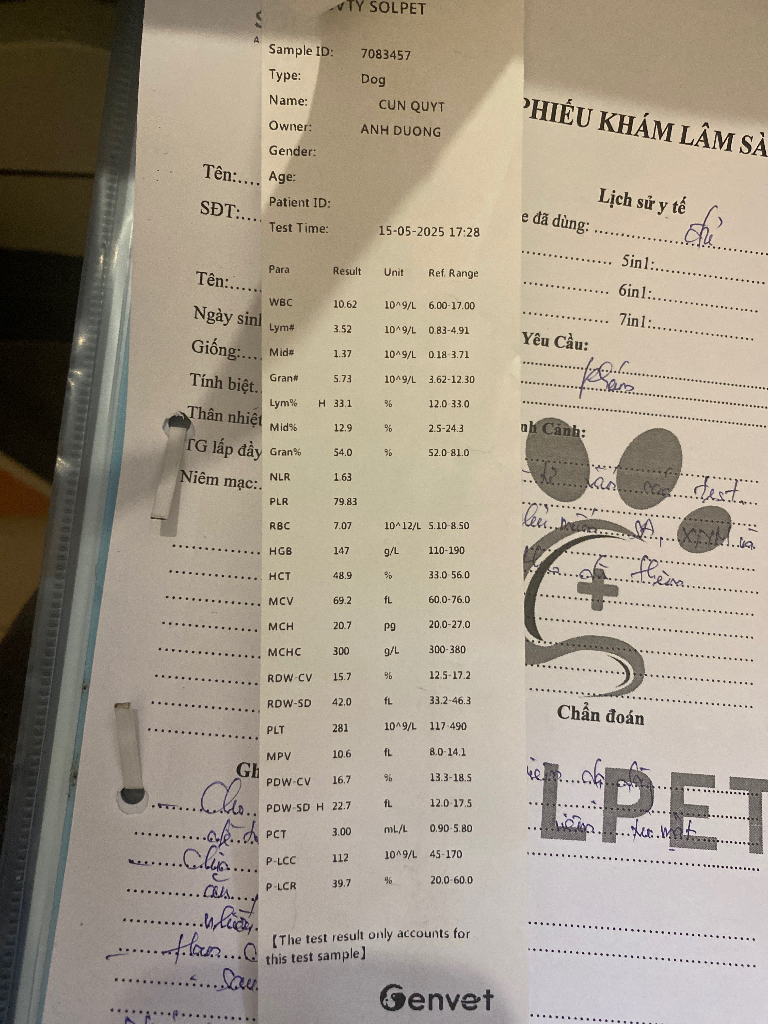 VTY SOLPET
Sample ID: 7083457
Type: Dog
Name: CUN QUYT
Owner: ANH DUONG
Gender:
Age:
Patient ID:
Test Time: 15-05-2025 17:28
Para Result Unit Ref. Range
WBC 10.62 10^9/L 6.00-17.00
Lym# 3.52 10^9/L 0.83-4.91
Mid# 1.37 10^9/L 0.18-3.71
Gran# 5.73 10^9/L 3.62-12.30
Lym% H 33.1 % 12.0-33.0
Mid% 12.9 % 2.5-24.3
Gran% 54.0 % 52.0-81.0
NLR 1.63
PLR 79.83
RBC 7.07 10^12/L 5.10-8.50
HGB 147 g/L 110-190
HCT 48.9 % 33.0-56.0
MCV 69.2 fL 60.0-76.0
MCH 20.7 pg 20.0-27.0
MCHC 300 g/L 300-380
RDW-CV 15.7 % 12.5-17.2
RDW-SD 42.0 fL 33.2-46.3
PLT 281 10^9/L 117-490
MPV 10.6 fL 8.0-14.1
PDW-CV 16.7 % 13.3-18.5
PDW-SD H 22.7 fL 12.0-17.5
PCT 3.00 mL/L 0.90-5.80
P-LCC 112 10^9/L 45-170
P-LCR 39.7 % 20.0-60.0
【The test result only accounts for
this test sample】
Genvet
Tên:....
SĐT:....
Tên:....
Ngày sinh
Giống:....
Tính biệt.
Thân nhiệt
TG lấp đầy
Niêm mạc:.
Gh
PHIẾU KHÁM LÂM SÀ
Lịch sử y tế
e đã dùng:
5in1:
6in1:
7in1:
Yêu Cầu:
Khám
nh Cảnh:
test
thêm
Chẩn đoán
LPET